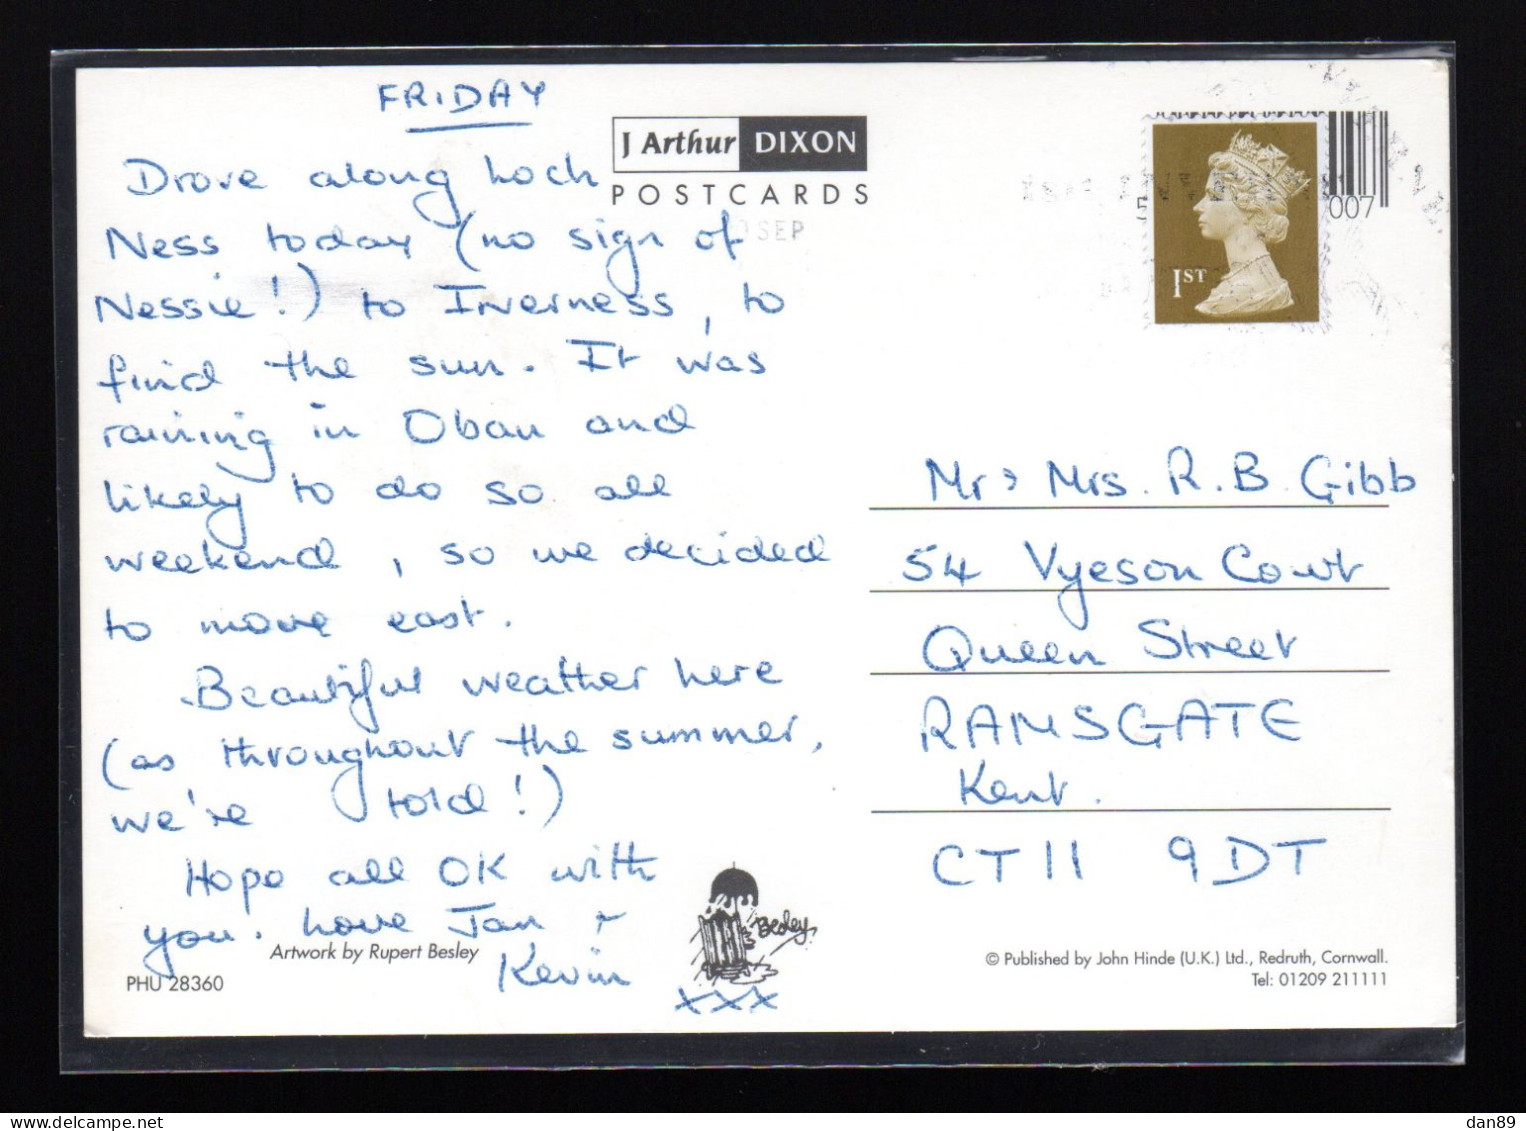 FRIDAY
Drove along Loch
Ness today (no sign of
Nessie!) to Inverness, to
find the sun. It was
raining in Oban and
likely to do so all
weekend, so we decided
to move east.
Beautiful weather here
(as throughout the summer,
we're told!)
Hope all OK with
you. Love Jan +
Kevin
xxx
J Arthur DIXON
POSTCARDS
SEP
1ST
007
Mr & Mrs. R. B. Gibb
54 Vyeson Court
Queen Street
RAMSGATE
Kent.
CT11 9DT
Besley
Artwork by Rupert Besley
PHU 28360
© Published by John Hinde (U.K.) Ltd., Redruth, Cornwall.
Tel: 01209 211111
dan89